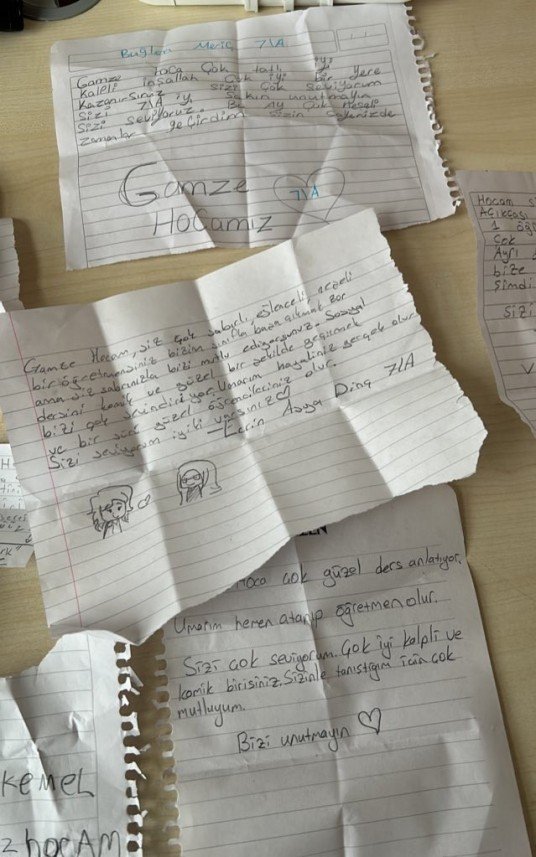 Buğlem Meriç 7/A
Gamze Hoca Çok tatlı iyi
Kalpli İnşallah Çok iyi Bir yere
Kazanırsınız sizi Çok Seviyorum
Sizi 7/A yı Sakın unutmayın
Sizi seviyoruz. Bir Ay Çok Neşeli
Zamanlar geçirdim Sizin Sayenizde
Gamze
Hocamız
7/A
Gamze Hocam, siz çok sabırlı, eğlenceli, acaleli
bir öğretmensiniz bizim sınıfla başa çıkmak zor
ama siz sabrınızla bizi mutlu ediyorsunuz. Sosyal
dersini komik ve güzel bir şekilde geçirmek
bizi çok sevindiriyor. Umarım hayaliniz gerçek olur
ve bir sürü güzel öğrencileriniz olur.
Sizi seviyorum iyiki varsınız♡
Asya Dinç 7/A
Hoca çok güzel ders anlatıyor.
Umarım hemen atanıp öğretmen olur.
Sizi çok seviyorum. Çok iyi kalpli ve
komik birisiniz. Sizinle tanıştığım için çok
mutluyum.
Bizi unutmayın ♡
Hocam s
Açıkçası
1 öğr
Çok
Ayrı
bize
Şimdi
sizi
KEMEL
z hocAM